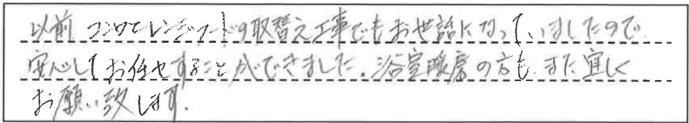 以前コンロとレンジフードの取替え工事でもお世話になっていましたので
安心してお任せすることができました。浴室暖房の方も、また宜しく
お願い致します。